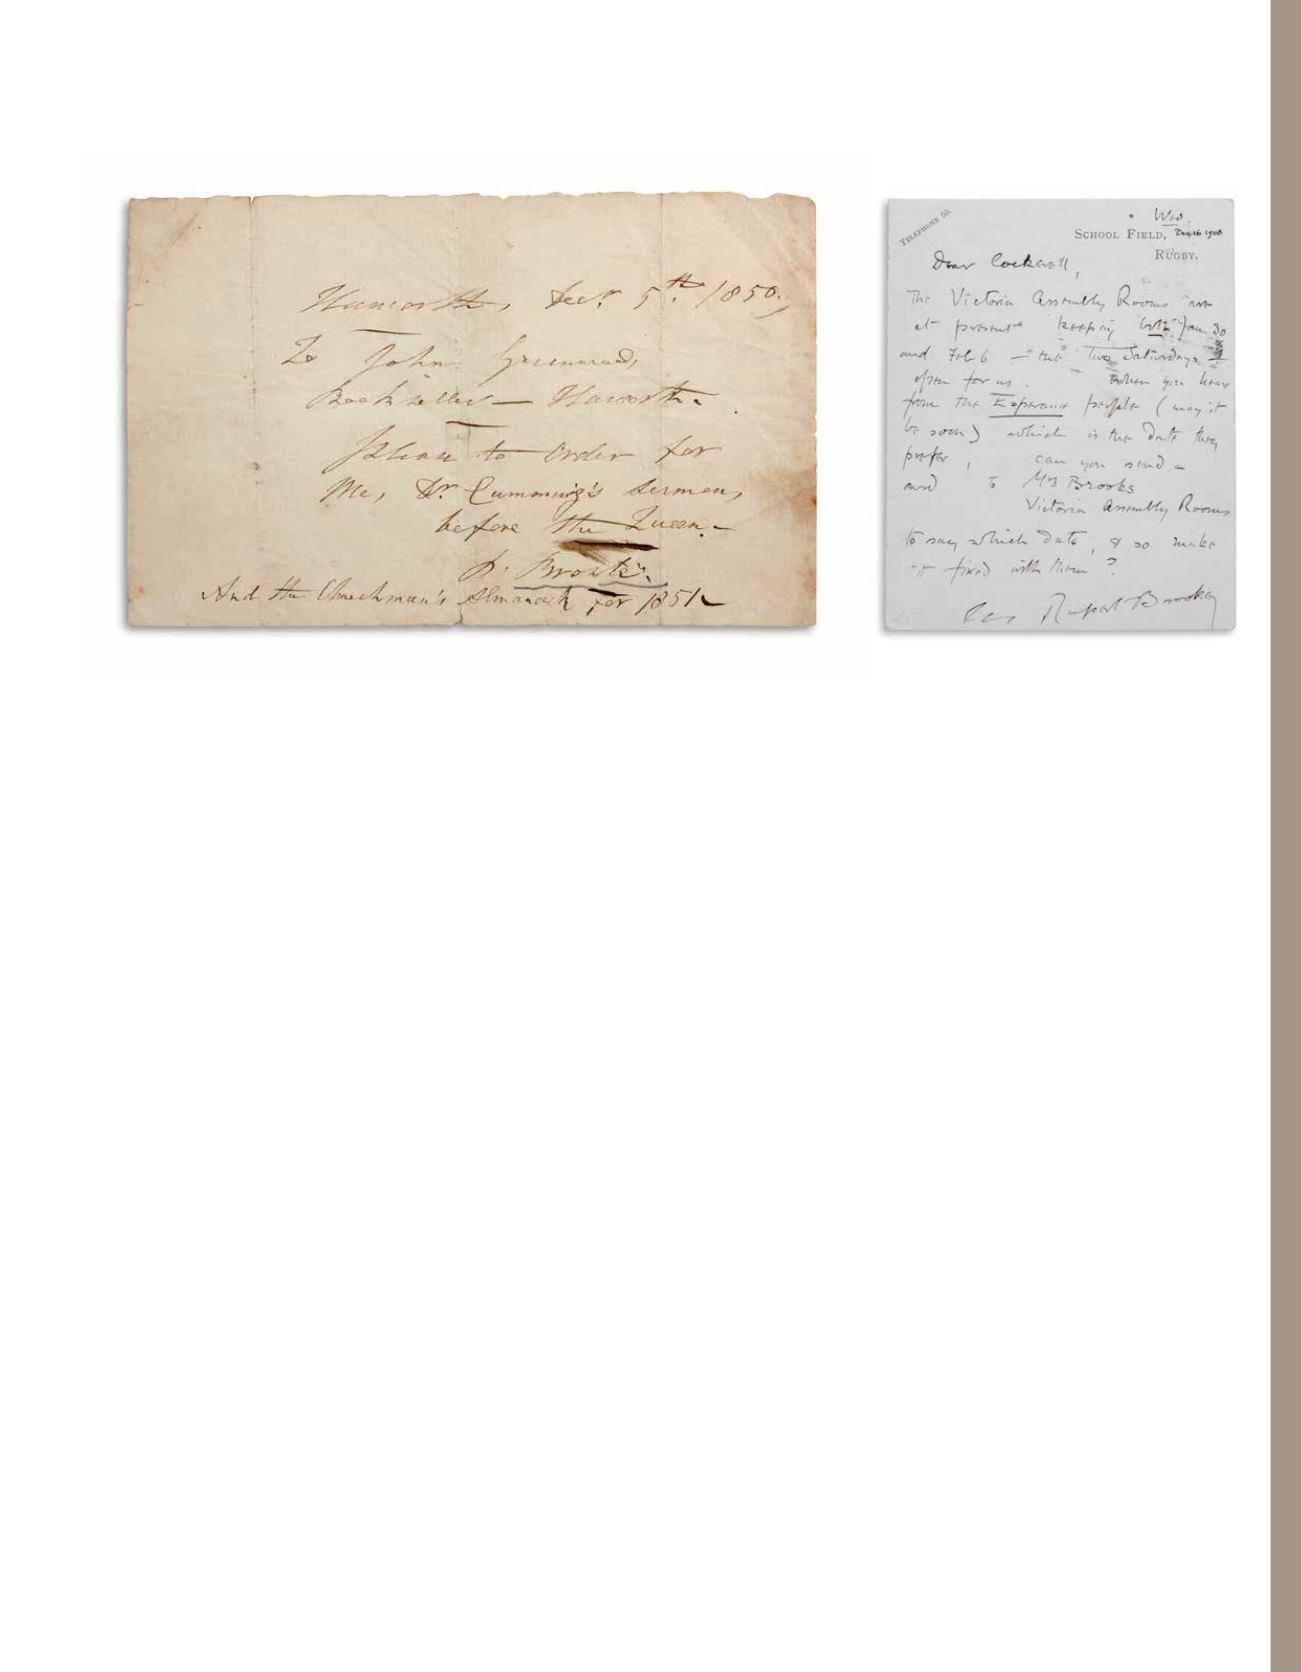 Haworth, Decr. 5th. 1850,
To John Greenwood,
Bookseller — Haworth.
Please to order for
Me, Dr. Cumming's sermon,
before the Queen. —
P. Brontë.
And the Churchman's Almanack for 1851
TELEPHONE 50.
Wed.
SCHOOL FIELD, Dec 16 1908
RUGBY.
Dear Cockerell,
The Victoria Assembly Rooms are
at present keeping both Jan 30
and Feb 6 — the two Saturdays —
open for us. When you hear
from the Esperance people (may it
be soon) which is the date they
prefer, can you send a
card to Mrs Brooks
Victoria Assembly Rooms
to say which date, & so make
it fixed with them?
Rupert Brooke